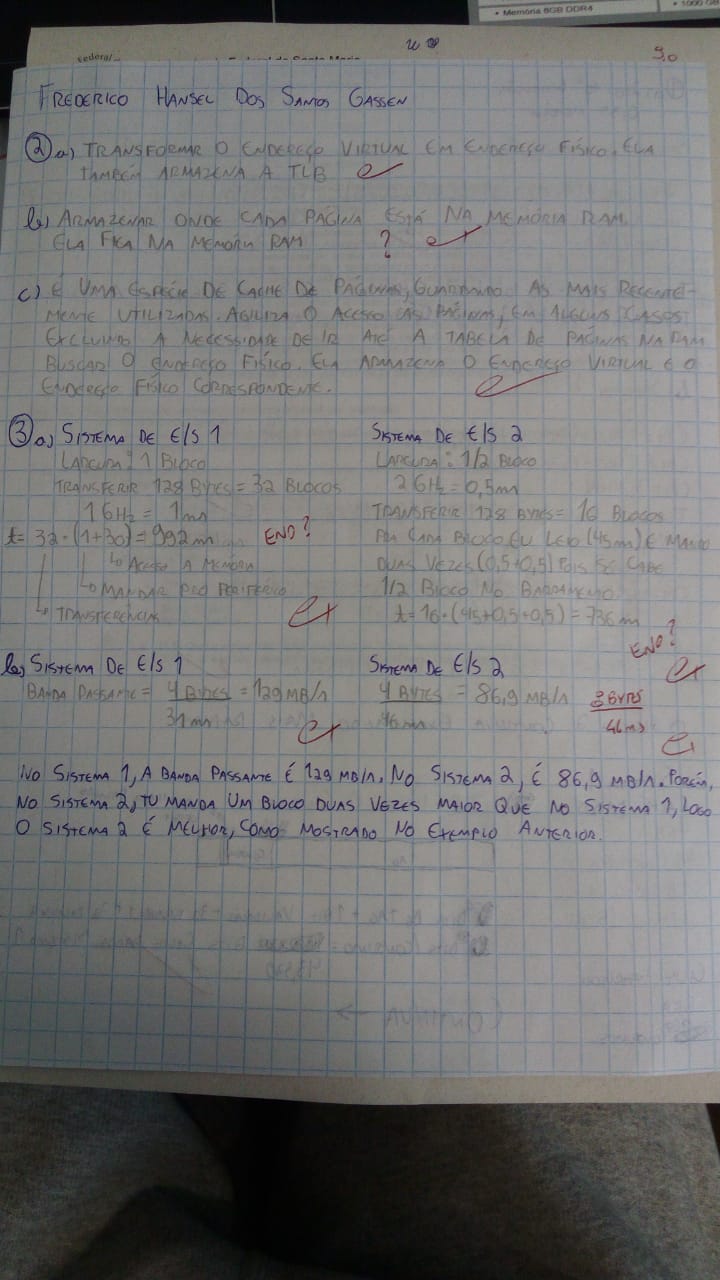 • Memória 8GB DDR4
• 1000 GB
Federal
9,0
FREDERICO HANSEL DOS SANTOS GASSEN
2 a) TRANSFORMAR O ENDEREÇO VIRTUAL EM ENDEREÇO FÍSICO. ELA
TAMBÉM ARMAZENA A TLB
b) ARMAZENAR ONDE CADA PÁGINA ESTÁ NA MEMÓRIA RAM.
ELA FICA NA MEMÓRIA RAM ?
c) É UMA ESPÉCIE DE CACHE DE PÁGINAS, GUARDANDO AS MAIS RECENTE-
MENTE UTILIZADAS. AGILIZA O ACESSO ÀS PÁGINAS, EM ALGUNS CASOS
EXCLUINDO A NECESSIDADE DE IR ATÉ A TABELA DE PÁGINAS NA RAM
BUSCAR O ENDEREÇO FÍSICO. ELA ARMAZENA O ENDEREÇO VIRTUAL E O
ENDEREÇO FÍSICO CORRESPONDENTE.
3 a) SISTEMA DE E/S 1
LARGURA: 1 BLOCO
TRANSFERIR 128 BYTES = 32 BLOCOS
1 GHz = 1 ns
t = 32 · (1+30) = 992 ns END?
ACESSO A MEMÓRIA
MANDAR PRO PERIFÉRICO
TRANSFERÊNCIAS
SISTEMA DE E/S 2
LARGURA: 1/2 BLOCO
2 GHz = 0,5 ns
TRANSFERIR 128 BYTES = 16 BLOCOS
PRA CADA BLOCO EU LEIO (45 ns) E MANDO
DUAS VEZES (0,5+0,5) POIS SÓ CABE
1/2 BLOCO NO BARRAMENTO
t = 16 · (45+0,5+0,5) = 736 ns
END?
b) SISTEMA DE E/S 1
BANDA PASSANTE = 4 BYTES = 129 MB/s
31 ns
SISTEMA DE E/S 2
4 BYTES = 86,9 MB/s
46 ns
8 BYTES
46 ns
NO SISTEMA 1, A BANDA PASSANTE É 129 MB/s. NO SISTEMA 2, É 86,9 MB/s. PORÉM,
NO SISTEMA 2, TU MANDA UM BLOCO DUAS VEZES MAIOR QUE NO SISTEMA 1, LOGO
O SISTEMA 2 É MELHOR, COMO MOSTRADO NO EXEMPLO ANTERIOR.